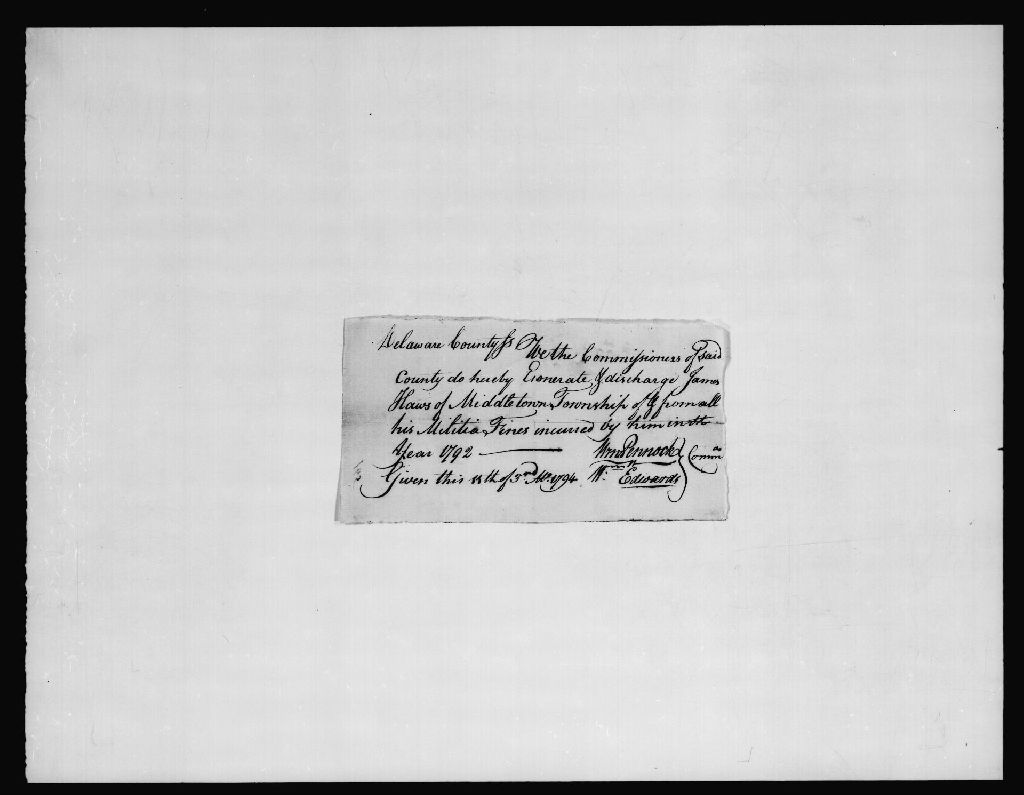 Delaware County ss We the Commissioners of said
County do hereby Exonerate & discharge James
Haws of Middletown Township of & from all
his Militia Fines incurred by him in the
Year 1792
Wm Pennock
Comrs
Given this 18th of 3rd Mo. 1794 Wm Edwards